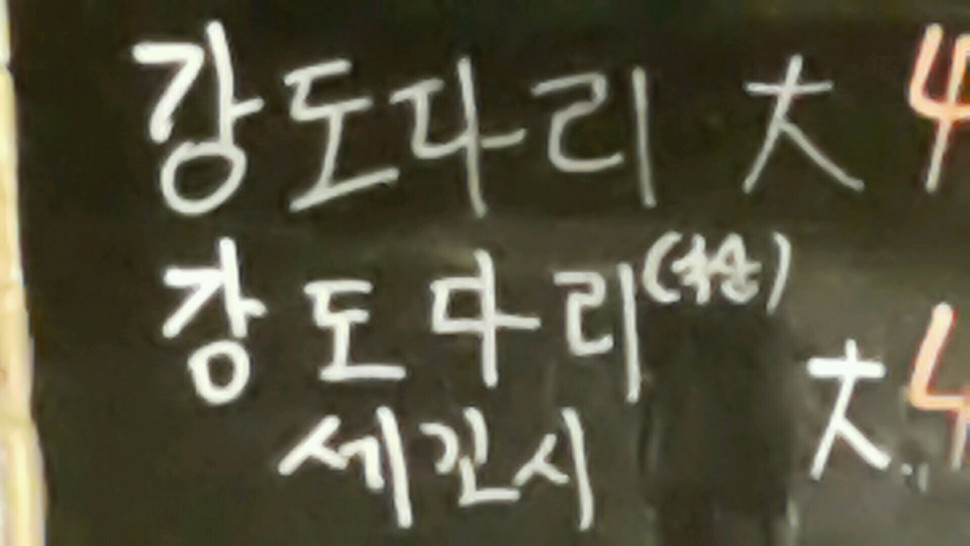 강도다리 大 4
강도다리
大 4
세꼬시